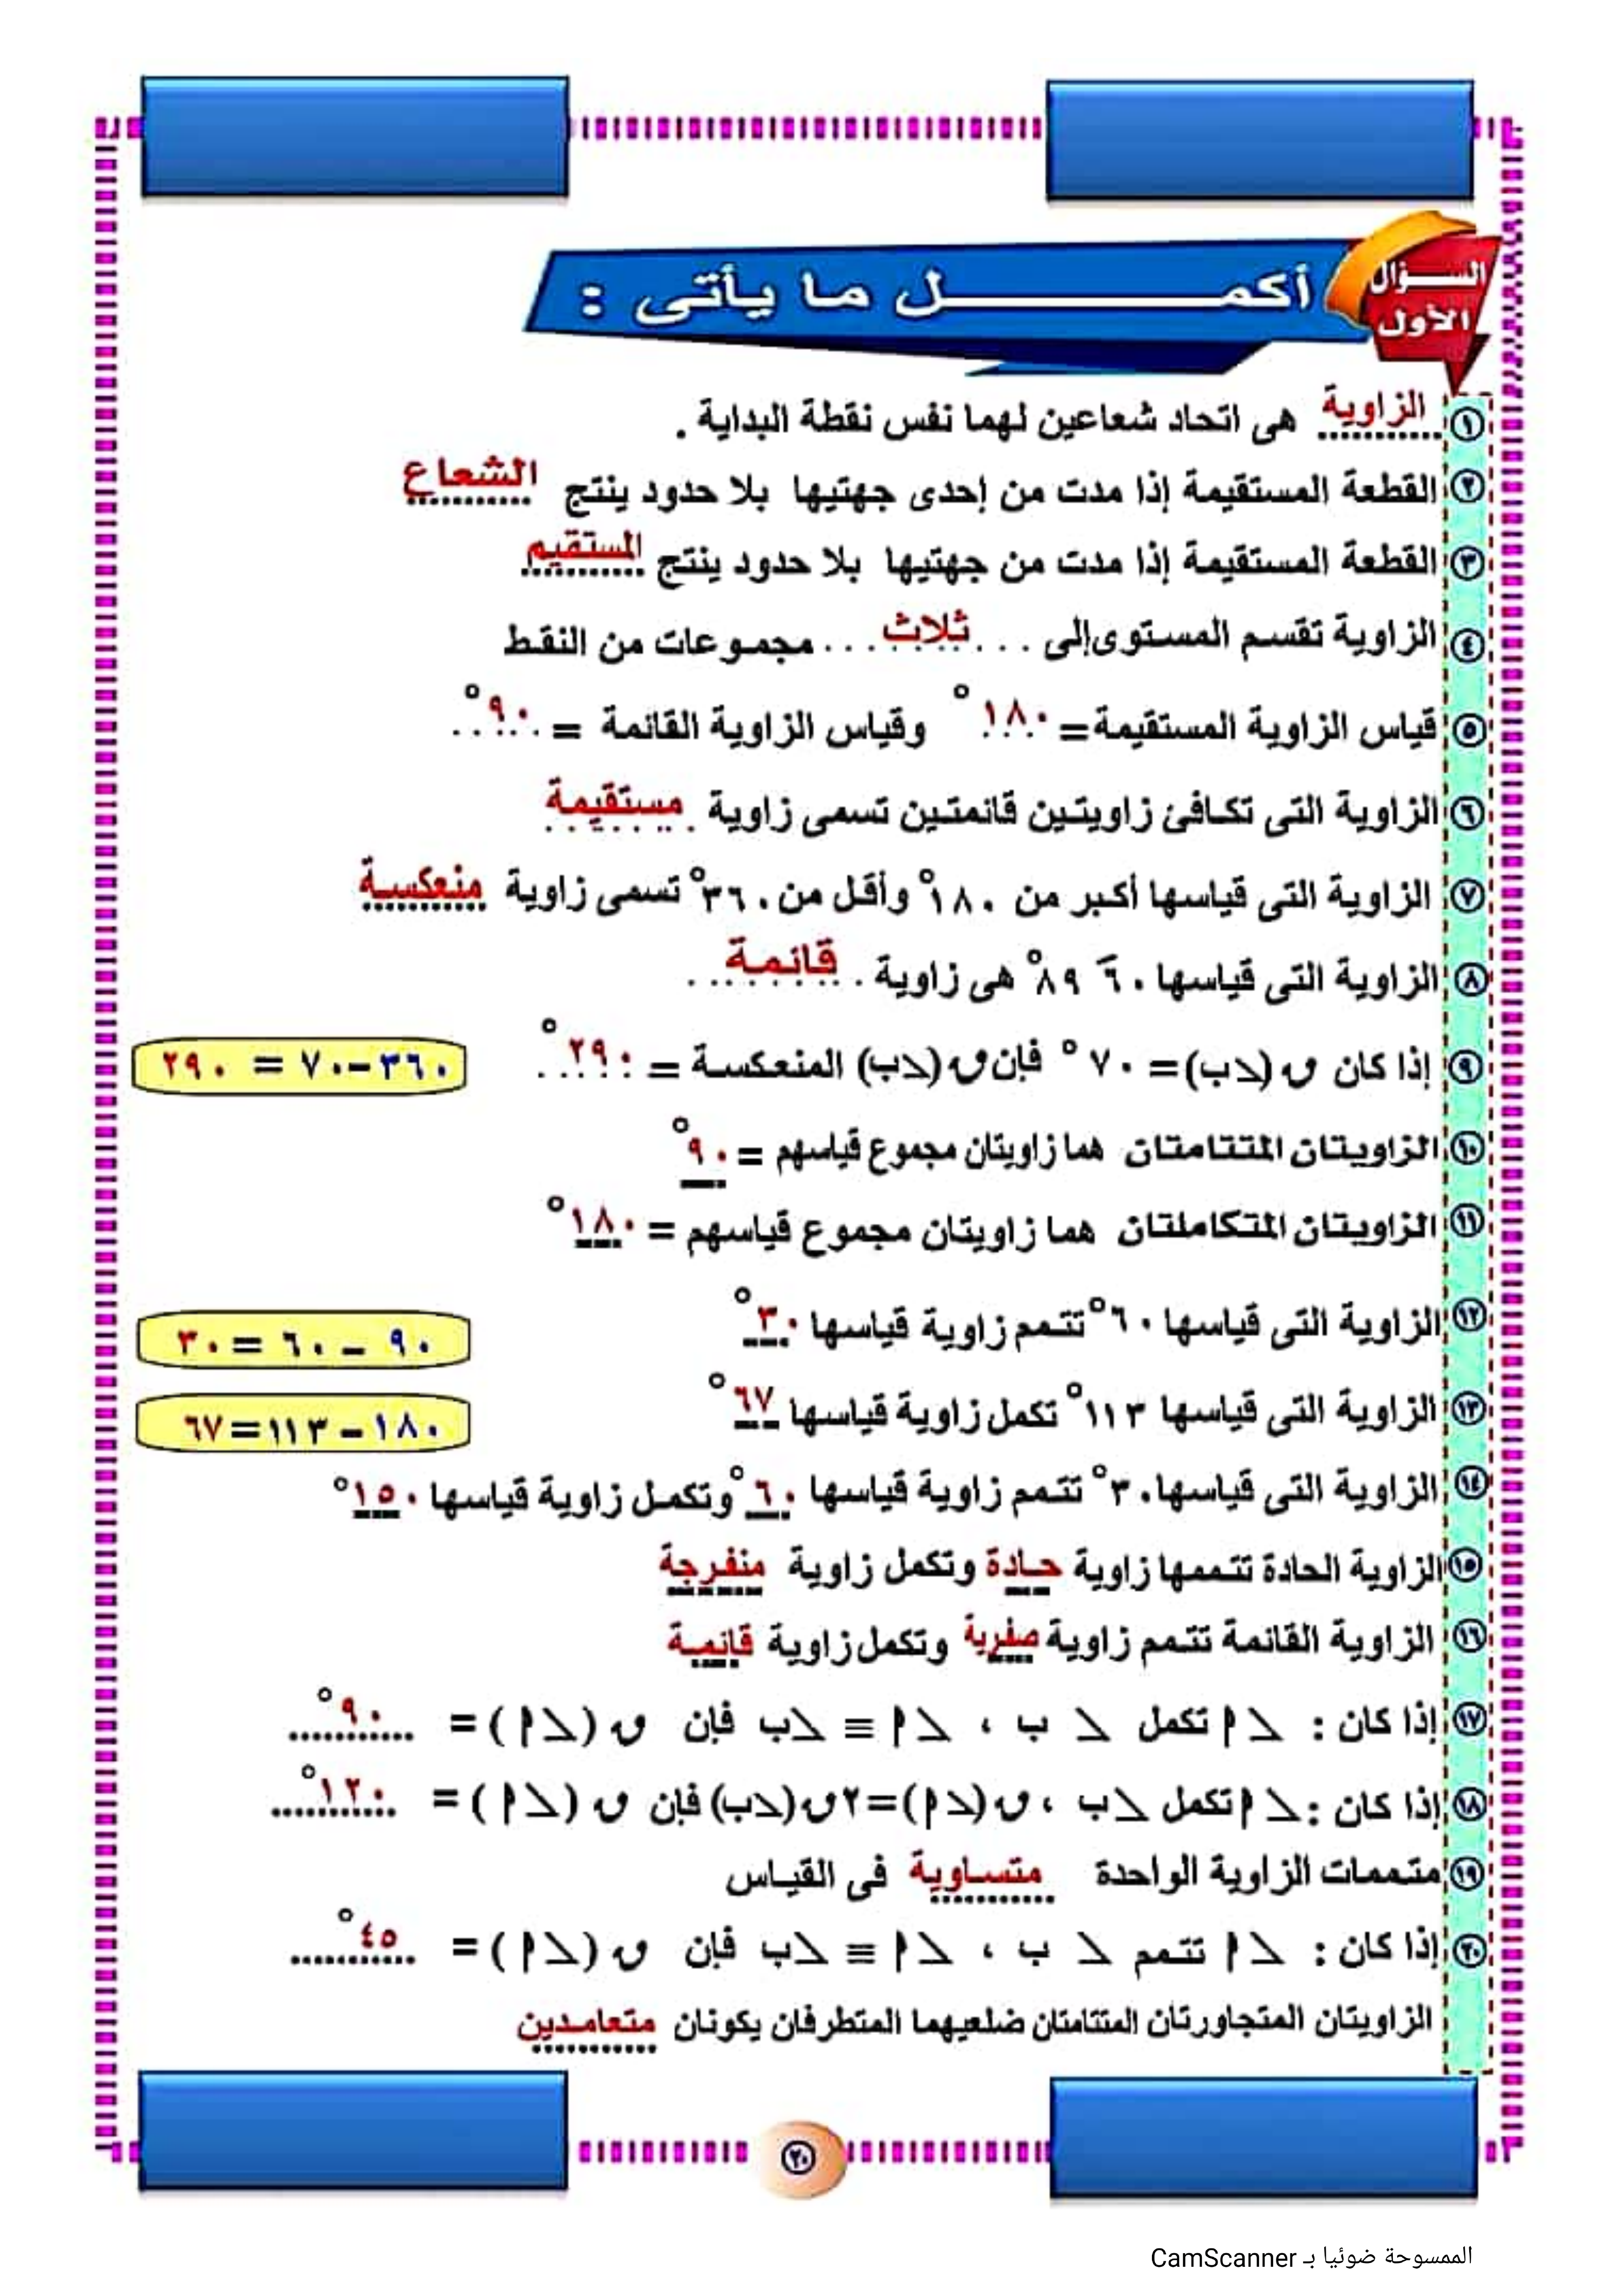 السؤال الأول
أكمـــل ما يأتى :
١ الزاوية هى اتحاد شعاعين لهما نفس نقطة البداية .
٢ القطعة المستقيمة إذا مدت من إحدى جهتيها بلا حدود ينتج الشعاع
٣ القطعة المستقيمة إذا مدت من جهتيها بلا حدود ينتج المستقيم
٤ الزاوية تقسم المستوى إلى ... ثلاث ... مجموعات من النقط
٥ قياس الزاوية المستقيمة = ١٨٠° وقياس الزاوية القائمة = ٩٠°
٦ الزاوية التى تكافئ زاويتين قائمتين تسمى زاوية مستقيمة
٧ الزاوية التى قياسها أكبر من ١٨٠° وأقل من ٣٦٠° تسمى زاوية منعكسة
٨ الزاوية التى قياسها ٦٠َ ٨٩° هى زاوية قائمة
٩ إذا كان ق (∠ب) = ٧٠° فإن ق (∠ب) المنعكسة = ٢٩٠° ٣٦٠ – ٧٠ = ٢٩٠
١٠ الزاويتان المتتامتان هما زاويتان مجموع قياسهم = ٩٠°
١١ الزاويتان المتكاملتان هما زاويتان مجموع قياسهم = ١٨٠°
١٢ الزاوية التى قياسها ٦٠° تتمم زاوية قياسها ٣٠° ٩٠ – ٦٠ = ٣٠
١٣ الزاوية التى قياسها ١١٣° تكمل زاوية قياسها ٦٧° ١٨٠ – ١١٣ = ٦٧
١٤ الزاوية التى قياسها ٣٠° تتمم زاوية قياسها ٦٠° وتكمل زاوية قياسها ١٥٠°
١٥ الزاوية الحادة تتممها زاوية حادة وتكمل زاوية منفرجة
١٦ الزاوية القائمة تتمم زاوية صفرية وتكمل زاوية قائمة
١٧ إذا كان : ∠ أ تكمل ∠ ب ، ∠ أ ≡ ∠ب فإن ق (∠ أ ) = ٩٠°
١٨ إذا كان : ∠ أ تكمل ∠ب ، ق (∠أ) = ٢ ق (∠ب) فإن ق (∠ أ ) = ١٢٠°
١٩ متممات الزاوية الواحدة متساوية فى القياس
٢٠ إذا كان : ∠ أ تتمم ∠ ب ، ∠ أ ≡ ∠ب فإن ق (∠ أ ) = ٤٥°
الزاويتان المتجاورتان المتتامتان ضلعيهما المتطرفان يكونان متعامدين
٢٠
الممسوحة ضوئيا بـ CamScanner